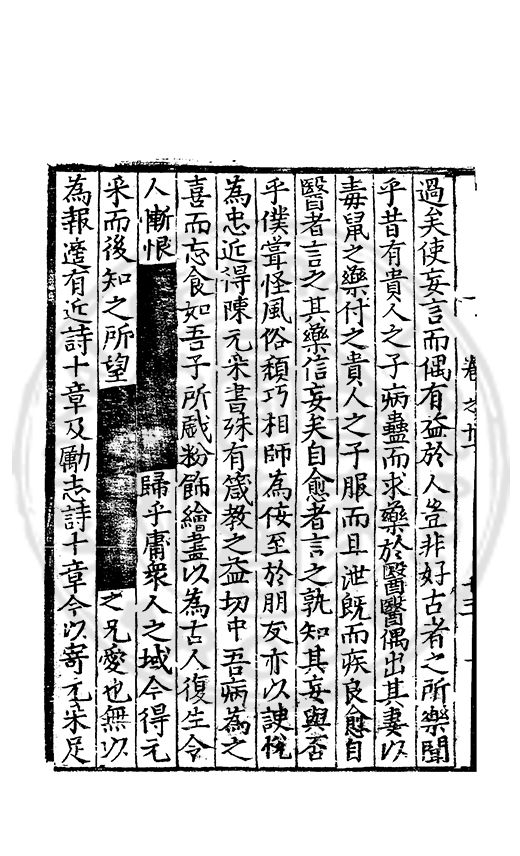 卷之廿一 十三
過矣使妄言而偶有益於人豈非好古者之所樂聞
乎昔有貴人之子病蠱而求藥於醫醫偶出其妻以
毒鼠之藥付之貴人之子服而且泄旣而疾良愈自
醫者言之其藥信妄矣自愈者言之孰知其妄與否
乎僕甞怪風俗頹巧相師為佞至於朋友亦以諛悅
為忠近得陳元采書殊有箴教之益切中吾病為之
喜而忘食如吾子所戲粉飾繪畫以為古人復生令
人慚恨 歸乎庸衆人之域今得元
采而後知之所望 之兄愛也無以
為報遼有近詩十章及勵志詩十章今以寄元采足